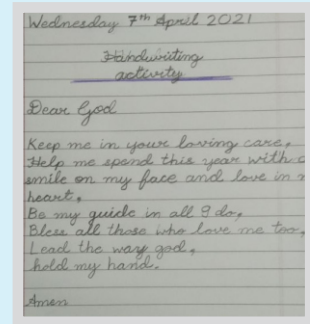 Wednesday 7th April 2021
Handwriting
activity
Dear God
Keep me in your loving care,
Help me spend this year with a
smile on my face and love in
heart,
Be my guide in all I do,
Bless all those who love me too,
Lead the way god,
hold my hand.
Amen